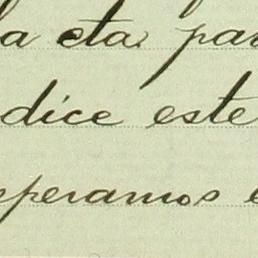 la eta par
dice este
speramos e